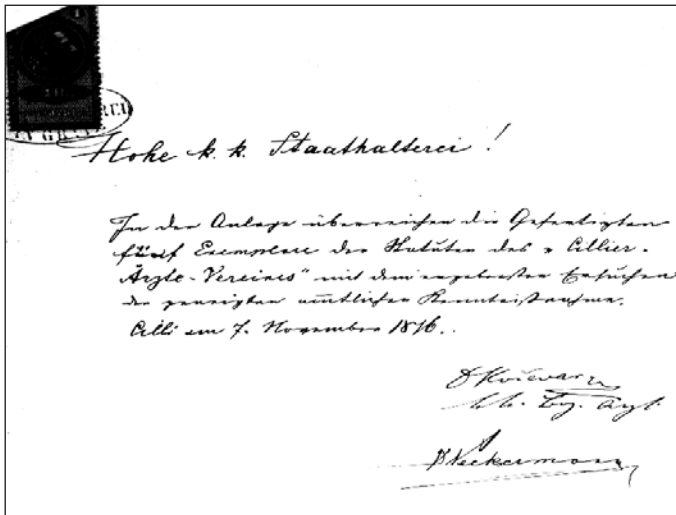 Hohe k. k. Staathalterei!
In der Anlage überreichen die Gefertigten
fünf Exemplare der Statuten des "Cillier-
Ärzte-Vereines" mit dem ergebensten Ersuchen
der geneigten amtlichen Kenntnißnahme.
Cilli am 7. November 1876.
Dr Kočevar
k. k. Bez. Arzt.
Dr Neckermann